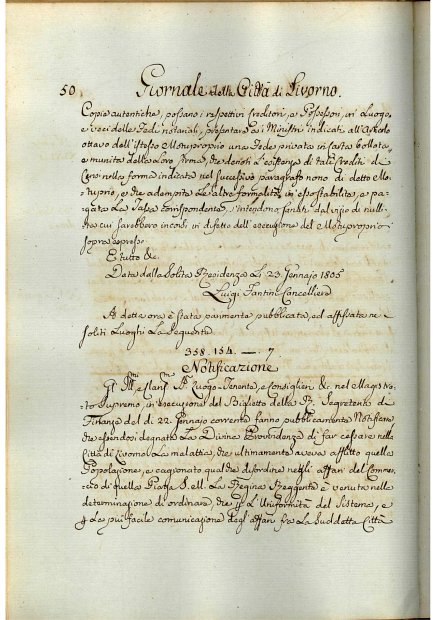 50 Giornale della Città di Livorno.
Copie autentiche, possano i respettivi Creditori, e Possessori, in Luogo,
e veci delle Fedi notariali, presentare a i Ministri indicati all'Articolo
ottavo dell'istesso Motuproprio una Fede privata in Carta bollata,
e munita della loro firma, che denoti l'esistenza di tali Crediti di
Censi nella forma indicata nel successivo paragrafo nono di detto Mo-
tuprio, e che adempite le altre formalità in esso stabilite, e pa-
gata La Tassa corrispondente, s'intendono sanati dal vizio di nulli-
tà cui sarebbero incorsi in difetto dell'esecuzione del Motuproprio
sopra espresso
E tutto &c.
Data dalla Solita Residenza Li 23 Gennajo 1805
Luigi Fantini Cancelliere
A dette ore è stata parimente pubblicata, ed affissata ne
soliti Luoghi La Seguente
358. 154. — 7.
Notificazione
Gl' Ill.mi e Clar.mi SS.ri Luogo-Tenente, e Consiglieri &c. nel Magistra-
to Supremo, in esecuzione del Biglietto della R. Segreteria di
Finanze del dì 22 Gennajo corrente fanno pubblicamente Notificare
che essendosi degnata La Divina Provvidenza di far cessare nella
Città di Livorno La malattia, che ultimamente aveva afflitto quella
Popolazione, e cagionato qualche disordine negli affari del Commer-
cio di quella Piazza S. M. La Regina Reggente è venuta nella
determinazione di ordinare, che p. L'Uniformità del Sistema, e
p. La più facile comunicazione degl'affari fra La Suddetta Città